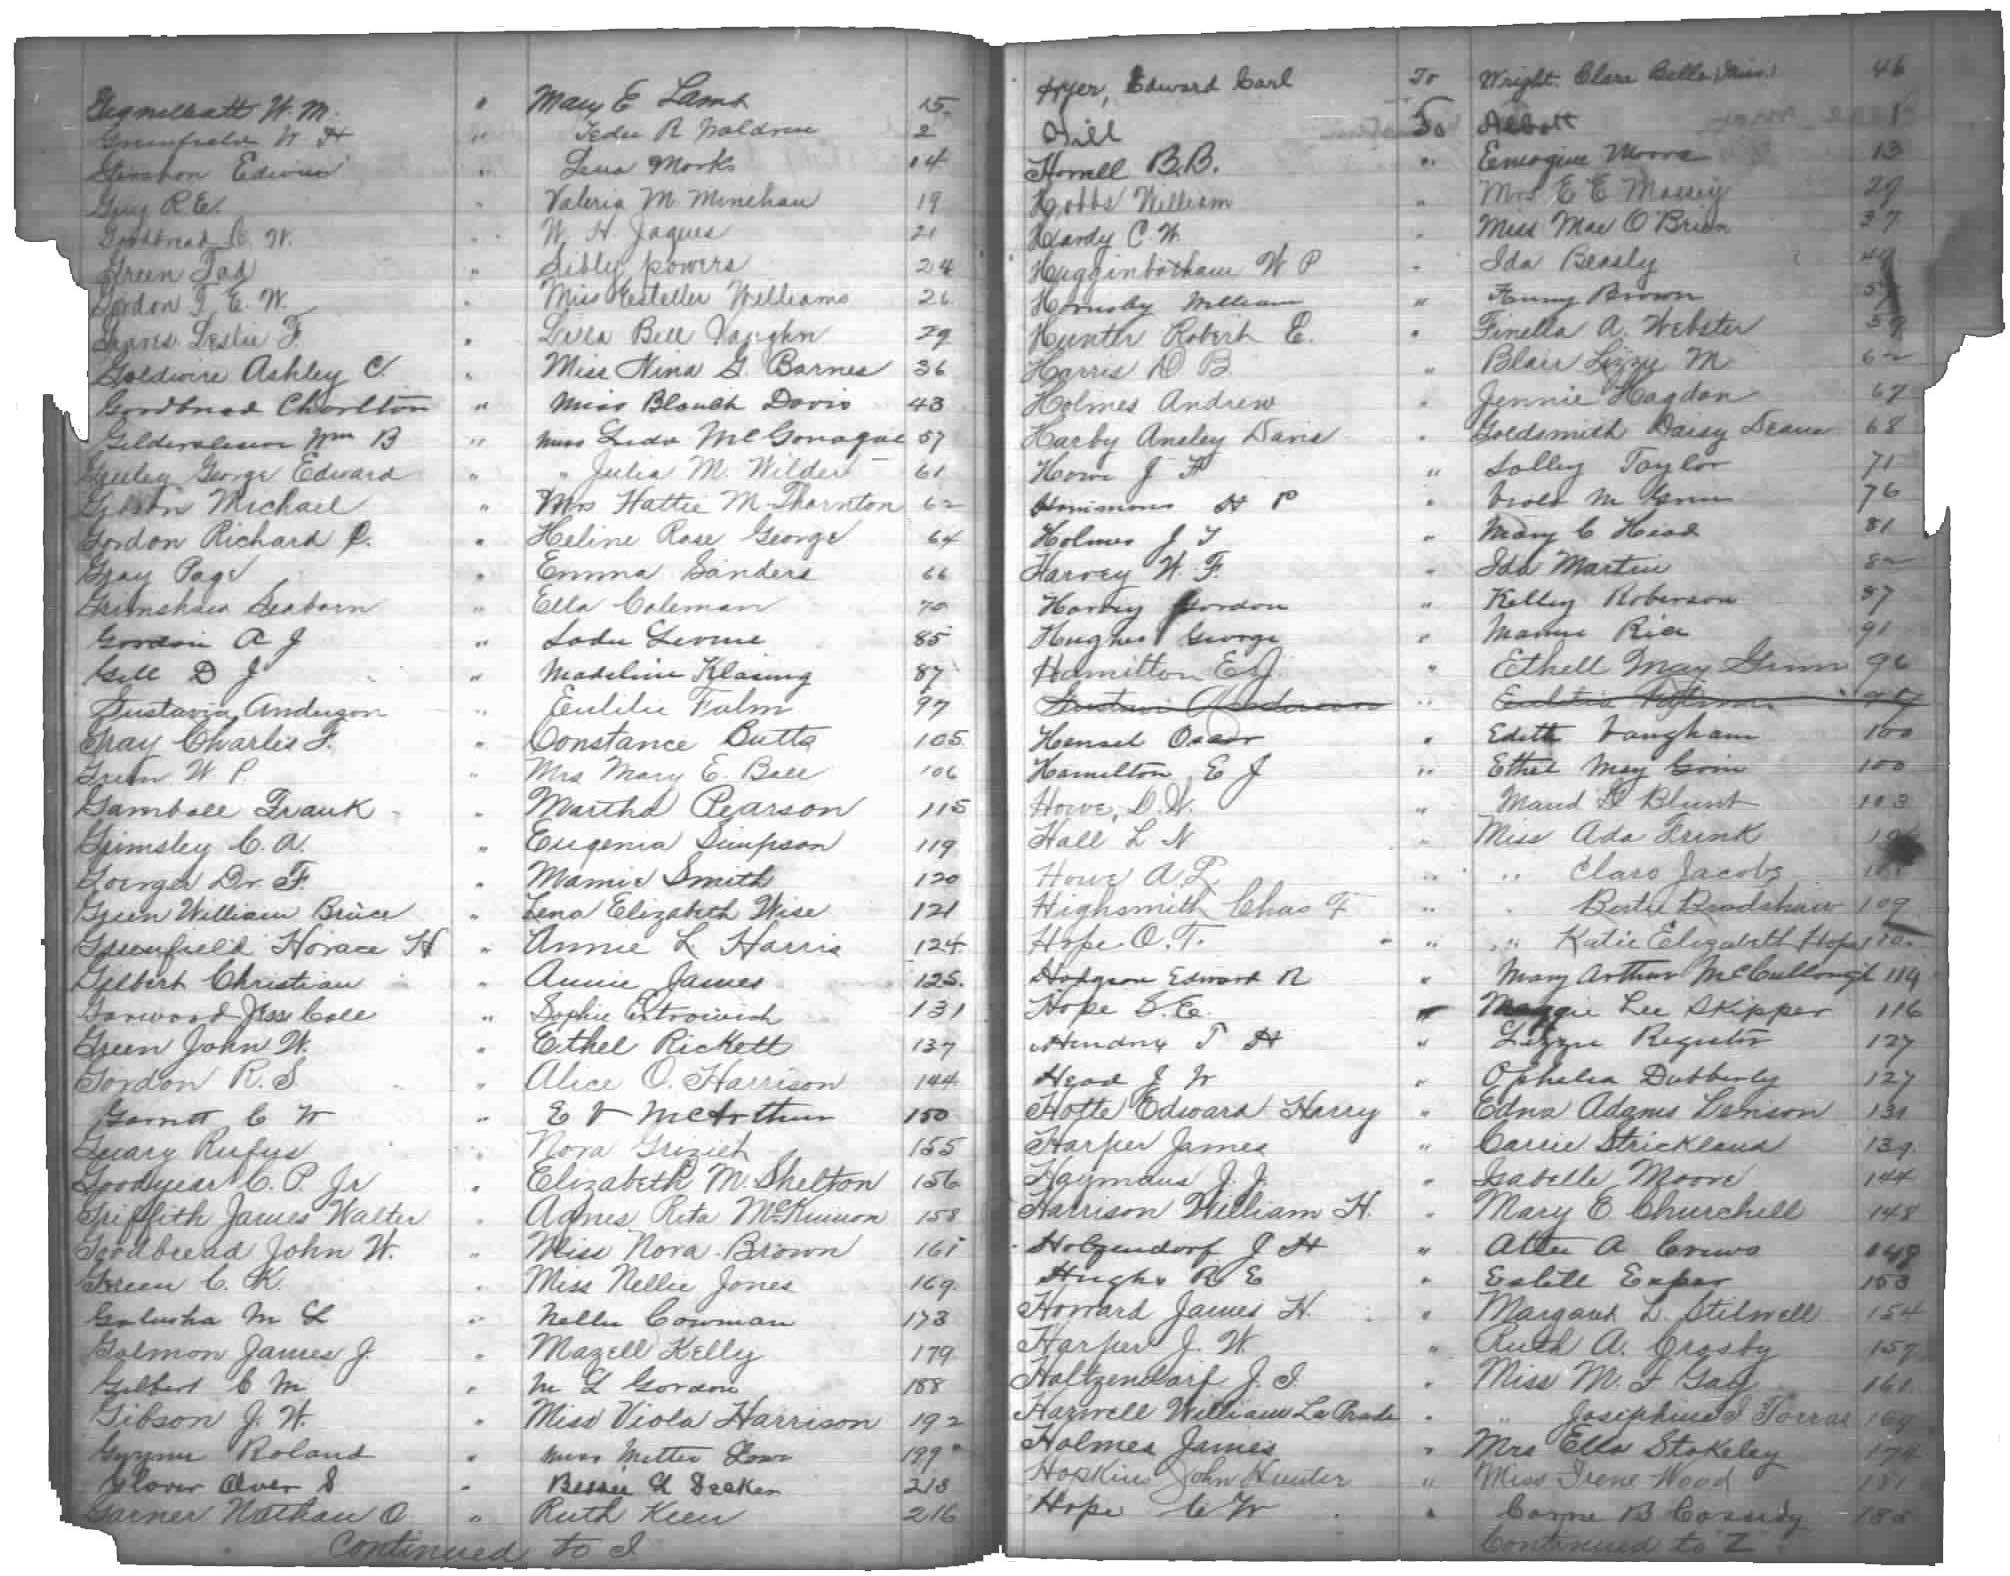 W. M. " Mary E Lamb 15
Greenfield W H " R Waldron 2
Edwin " Lena Marks 14
R. E. " Valeria M. Minehan 19
Goodbread C. W. " W. H. Jaques 21
Green Tad " Sibly powers 24
Gordon T. E. W. " Miss Esteller Williams 26
Graves Leslie F. " Lilla Bell Vaughn 29
Goldwire Ashley C. " Miss Nina G. Barnes 36
Goodbread Charlton " Miss Blanch Davis 43
Gildersleeve Wm B " Miss Lida McGonagal 57
Greeley George Edward " " Julia M. Wilder 61
Gibson Michael " Mrs Hattie M. Thornton 62
Gordon Richard C. " Heline Rose George 64
Gray Page " Emma Sanders 66
Grimshaw Seaborn " Ella Coleman 70
Gordon A J " Sadie Levine 85
Gill D J " Madeline Klasing 87
Gustavia Anderson " Eulilie 97
Gray Charles F. " Constance Butts 105
Green W P. " Mrs Mary E. Ball 106
Gamball Frank " Martha Pearson 115
Grimsley C. A. " Eugenia Simpson 119
Goerger Dr. F. " Mamie Smith 120
Green William Bruce " Lena Elizabeth Wise 121
Greenfield Horace H " Annie L Harris 124
Gilbert Christian " Annie James 125.
Garwood Jesse Cole " Sophie 131
Green John W. " Ethel Rickett 137
Gordon R. S. " Alice O. Harrison 144
Garnett C W " E V McArthur 150
Guary Rufus " Nora 155
Goodyear C. P. Jr " Elizabeth M. Shelton 156
Griffith James Walter " Agnes Rita McKinnon 158
Goodbread John W. " Miss Nora Brown 161
Green C. K. " Miss Nellie Jones 169.
Galusha M L " Nellie Cowman 173
Galmon James J. " Mazell Kelly 179
Gilbert C M " M L Gordon 188
Gibson J. W. " Miss Viola Harrison 192
Roland " Miss 199
Glover Oliver S " Bessie L Decker 213
Garner Nathan O " Ruth Keen 216
Continued to I
Hyer, Edward Carl To Wright. Clara Bella (Miss) 46
Hill To Abbott 1
Horrell B. B. " Emogine Moore 13
Hobbs William " Mrs E E Massey 29
Hardy C. W. " Miss Mae O'Brien 37
Hugginbotham W P " Ida Beasly 49
Hornsby William " Fanny Brown 57
Hunter Robert E. " Finella A. Webster 59
Harris D B. " Blair Lizzy M 62
Holmes Andrew " Jennie Hagdon 67
Harby Ansley Davis " Goldsmith Daisy Deane 68
Howe J F " Salley Taylor 71
H P " Viola M 76
Holmes J T " Mary C Head 81
Harvey W. F. " Ida Martin 82
Harvey Gordon " Kelley Roberson 87
Hughes George " Mamie Rice 91
Hamilton E. J. " Ethell May Ginn 96
Gustavi Anderson " 97
Hensel Oscar " Edith Vangham 100
Hamilton E J " Ethel May 100
Howe, D. W. " Maud D Blunt 103
Hall L N " Miss Ada Frink
Howe A. P. " " Clara Jacobs
Highsmith Chas F " " Bertie Bradshaw 109
Hope O. T. " " Katie Elizabeth Hope 110.
Hodgson Edward R " Mary Arthur McCullough 114
Hope S. E. " Maggie Lee Skipper 116
Hendrix T H " Lizzie Register 127
Head J W " Ophelia Dubberly 127
Hotte Edward Harry " Edna Adams Denison 131
Harper James " Carrie Strickland 139.
Haymans J. J. " Isabelle Moore 144
Harrison William H. " Mary E. Churchell 148
Holzendorf J H " A Crews 148
Hughs R E " Estelle 153
Howard James H. " Margaret L. Stilwell 154
Harper J. W. " Ruth A. Crosby 157
Haltzendorf J. I. " Miss M. F Gay 161
Harwell William La Prade " " Josephine I Torras 169
Holmes James " Mrs Ella Stokeley 174
Hopkins John Hunter " Miss Irene Wood 181
Hope C W " Corrine B Cassidy 185
Continued to Z